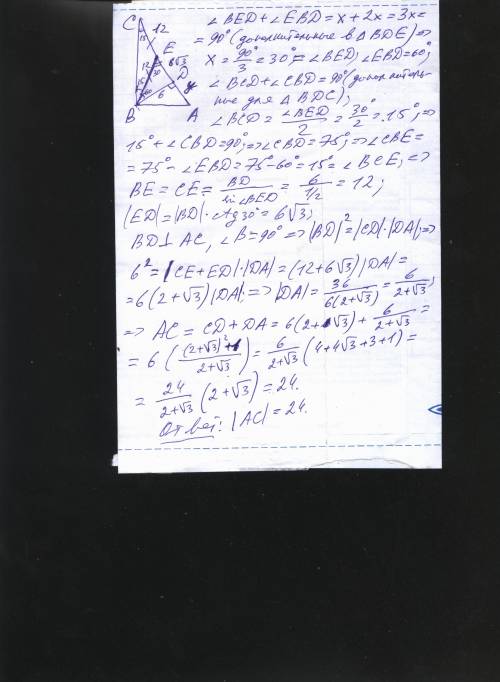 C
12
15
E
12
6√3
30
D
15
60
6
y
B
A
∠BED + ∠EBD = x + 2x = 3x =
= 90° (дополнительные в △BDE) =>
x = 90°/3 = 30° = ∠BED; ∠EBD = 60°;
∠BCD + ∠CBD = 90° (дополнитель-
ные для △BDC);
∠BCD = ∠BED/2 = 30°/2 = 15°; =>
15° + ∠CBD = 90°; => ∠CBD = 75°; => ∠CBE =
= 75° - ∠EBD = 75° - 60° = 15° = ∠BCE; =>
BE = CE = BD/sin∠BED = 6/(1/2) = 12;
|ED| = |BD| · ctg30° = 6√3;
BD ⊥ AC, ∠B = 90° => |BD|² = |CD|·|DA|; =>
6² = |CE + ED|·|DA| = (12 + 6√3)|DA| =
= 6(2 + √3)|DA|; => |DA| = 36/(6(2+√3)) = 6/(2+√3);
=> AC = CD + DA = 6(2 + √3) + 6/(2+√3) =
= 6(((2+√3)² + 1)/(2+√3)) = 6/(2+√3) (4 + 4√3 + 3 + 1) =
= 24/(2+√3) (2 + √3) = 24.
Ответ: |AC| = 24.